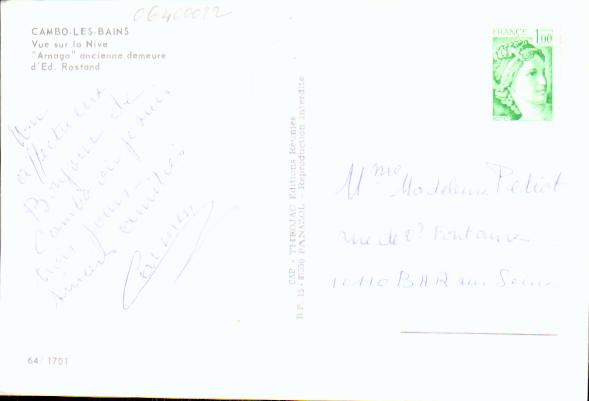 CG400012
CAMBO-LES-BAINS
Vue sur la Nive
"Arnaga" ancienne demeure
d'Ed. Rostand
FRANCE 1,00
Mon
affectueux
Bonjour de
Cambo où je suis
amitiés
CAP - THEOJAC Editions Réunies
B.P. 12 - 87350 PANAZOL - Reproduction Interdite
Mme Madeleine Petiot
rue de Fontaine
10110 BAR sur Seine
64/1701